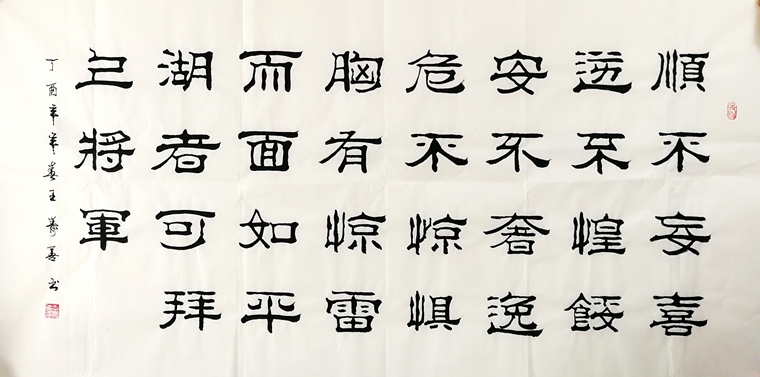 順不妄喜
逆不惶餒
安不奢逸
危不惊惧
胸有惊雷
而面如平
湖者可拜
上將軍
丁酉年 王 善书